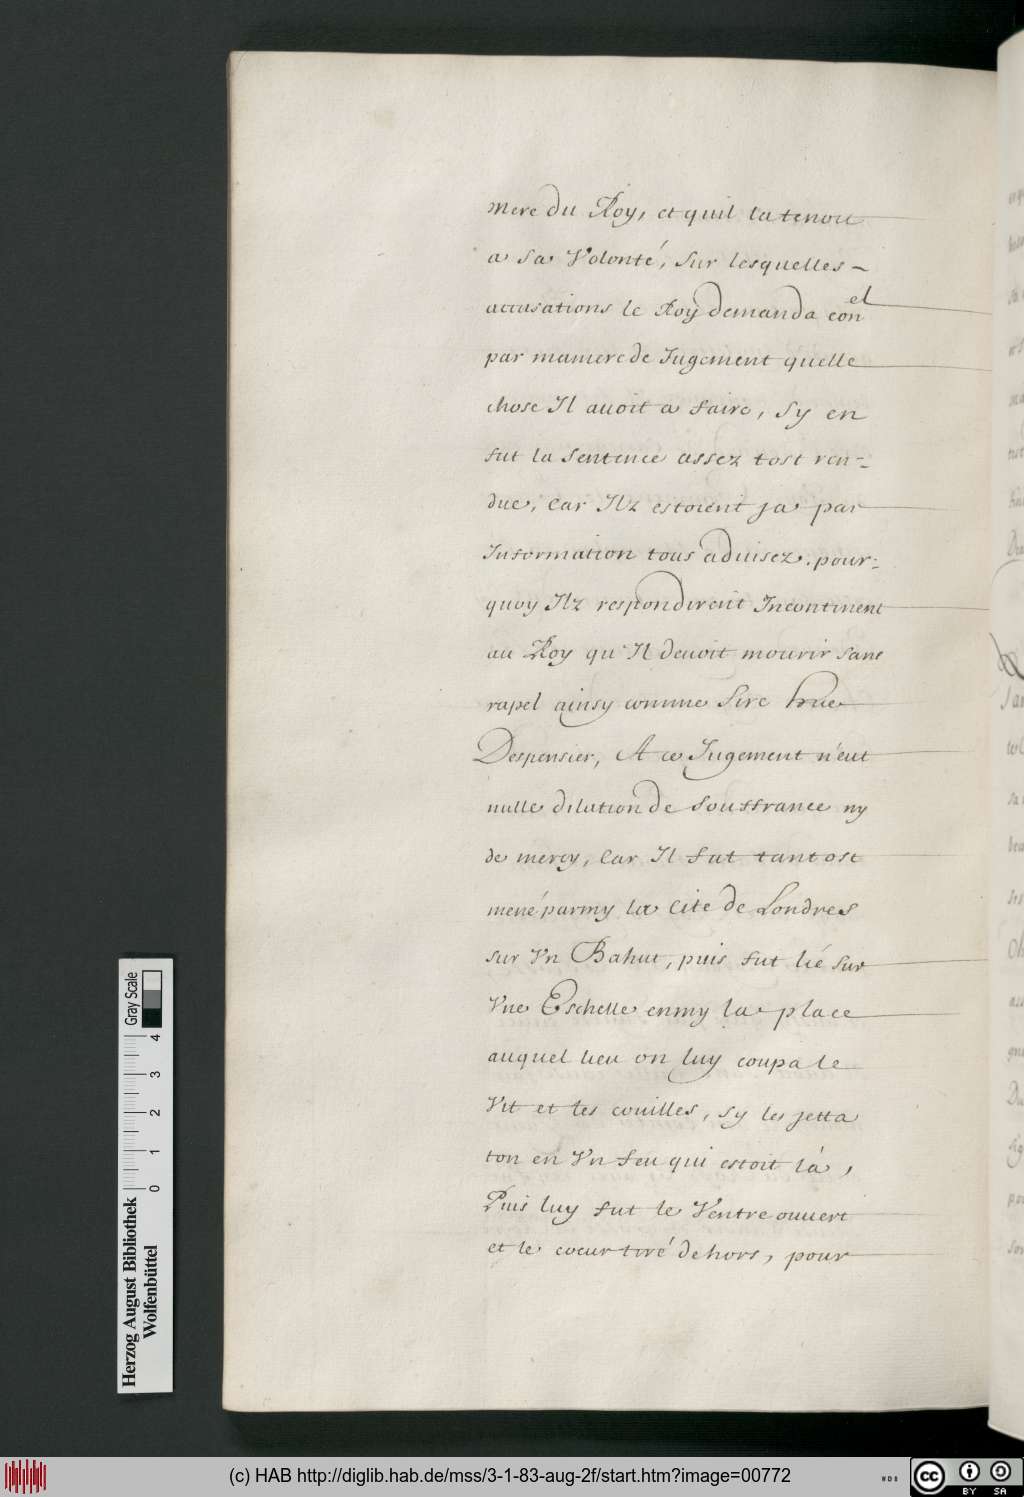 mere du Roy, et quil la tenoit
a sa Volonté, sur lesquelles –
accusations le Roy demanda con^el
par maniere de Jugement quelle
chose Il auoit a faire, sy en
fut la sentence assez tost ren-
due, Car Ilz estoient ja par
Information tous aduisez. pour-
quoy Ilz respondirent Incontinent
au Roy qu'Il deuoit mourir sans
rapel ainsy comme Sire hue
Despensier, A ce Jugement n'eut
nulle dilation de souffrance ny
de mercy, Car Il fut tantost
mené parmy la Cité de Londres
sur Vn Bahut, puis fut lié sur
Vne Eschelle enmy la place
auquel lieu on luy coupa le
Vit et les couilles, sy les jetta
ton en Vn feu qui estoit là,
Puis luy fut le Ventre ouuert
et le coeur tiré dehors, pour
Gray Scale
0 1 2 3 4
Herzog August Bibliothek
Wolfenbüttel
(c) HAB http://diglib.hab.de/mss/3-1-83-aug-2f/start.htm?image=00772
WDB
cc
BY SA